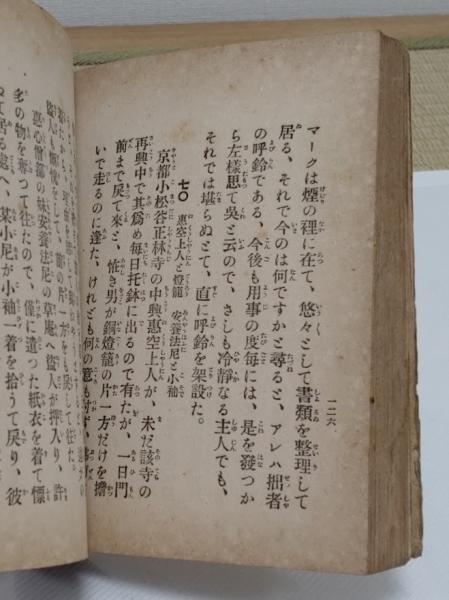 一二六
マークは煙の裡に在て、悠々として書類を整理して
居る、それで今のは何ですかと尋ると、アレハ拙者
の呼鈴である、今後も用事の度毎には、是を發つか
ら左樣思て吳と云ので、さしも冷靜なる主人でも、
それでは堪らぬとて、直に呼鈴を架設た。
七〇 惠空上人と燈籠 安養法尼と小袖
京都小松谷正林寺の中興惠空上人が、未だ該寺の
再興中で其爲め每日托鉢に出るので有たが、一日門
前まで戾て來と、怪き男が銅燈籠の片一方だけを擔
いで走るのに逢た、けれども何の意も
惠心僧都の妹安養法尼の草庵へ盜人が押入り、許
多の物を奪つて往たので、僅に遺つた紙衣を着て慄
て居る處へ、某小尼が小袖一着を拾うて戾り、彼